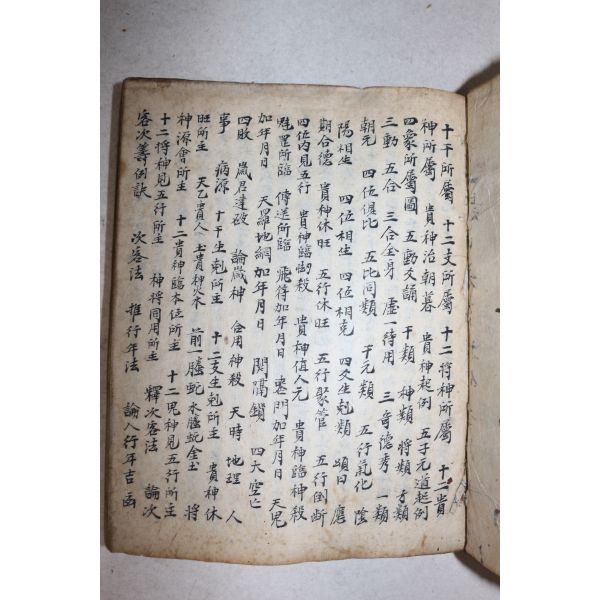 十干所屬 十二支所屬 十二將神所屬 十二貴
神所屬 貴神治朝暮 貴神起例 五子元遁起例
四象所屬圖 五動爻誦 干類 神類 將類 方類
三動 五合 三合全身 虛一待用 三奇德秀 一類
朝元 四位俱比 五比同類 干元類 五行氣化 陰
陽相生 四位相生 四位相克 四爻生剋類 頌曰 應
期合德 貴神休旺 五行休旺 五行聚管 五行例斷
四位內見五行 貴神臨劫殺 貴神值人元 貴神臨神殺
魁罡所臨 傳送所臨 飛符加年月日 喪門加年月日 天鬼
加年月日 天羅地網加年月日 関隔鎖 四大空亡
四敗 歲君違破 論歲神 合用神殺 天時 地理 人
事 病源 十干生剋所主 十二支生剋所主 貴神休
旺所主 天乙貴人 土貴神癸未 前一螣蛇 水螣蛇金玄 將
神源會所主 十二貴神臨本位所主 十二鬼神見五行所主
十二將神見五行所主 神將同用所主 釋次客法 論次
客次籌例訣 次客法 推行年法 論人行年吉凶